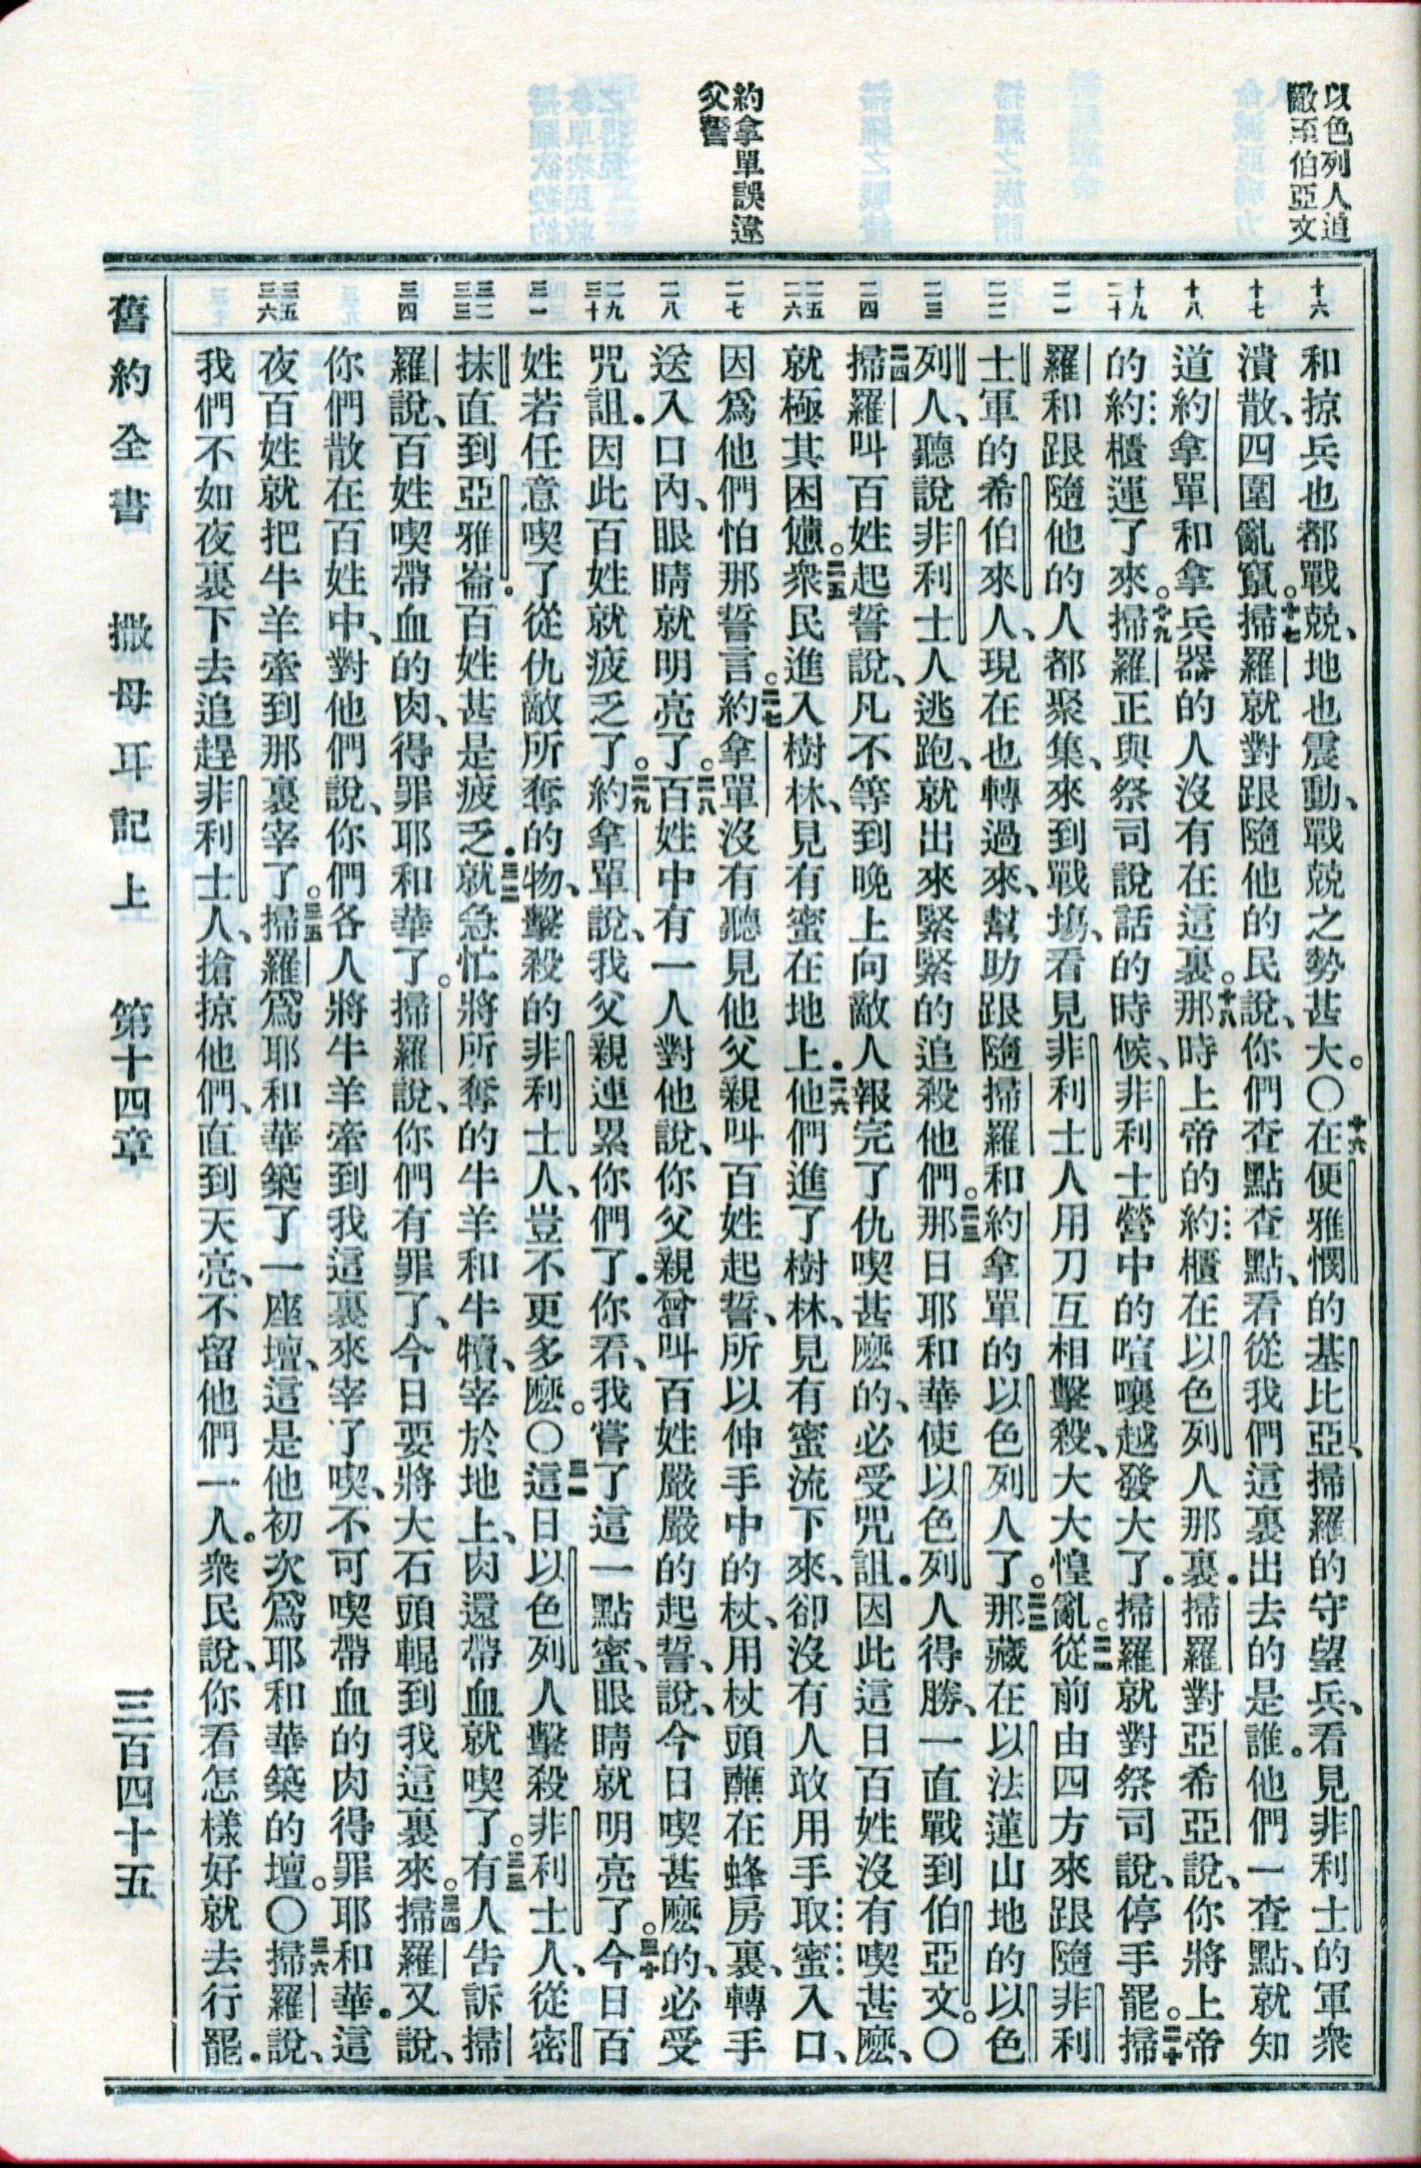 以色列人追
敵至伯亞文
約拿單誤違
父誓
十六
十七
十八
十九 二十
二一
二二
二三
二四
二五 二六
二七
二八
二九 三十
三一
三二 三三
三四
三五 三六
和掠兵也都戰兢、地也震動、戰兢之勢甚大。〇十六在便雅憫的基比亞、掃羅的守望兵、看見非利士的軍衆
潰散、四圍亂竄。十七掃羅就對跟隨他的民說、你們查點查點、看從我們這裏出去的是誰。他們一查點、就知
道約拿單和拿兵器的人沒有在這裏。十八那時上帝的約櫃在以色列人那裏．掃羅對亞希亞說、你將上帝
的約櫃運了來。十九掃羅正與祭司說話的時候、非利士營中的喧嚷越發大了．掃羅就對祭司說、停手罷。二十掃
羅和跟隨他的人都聚集、來到戰塲、看見非利士人用刀互相擊殺、大大惶亂。二一從前由四方來跟隨非利
士軍的希伯來人、現在也轉過來、幫助跟隨掃羅和約拿單的以色列人了。二二那藏在以法蓮山地的以色
列人、聽說非利士人逃跑、就出來緊緊的追殺他們。二三那日耶和華使以色列人得勝、一直戰到伯亞文。〇
二四掃羅叫百姓起誓說、凡不等到晚上向敵人報完了仇喫甚麽的、必受咒詛．因此這日百姓沒有喫甚麽、
就極其困憊。二五衆民進入樹林、見有蜜在地上．二六他們進了樹林、見有蜜流下來、卻沒有人敢用手取蜜入口、
因爲他們怕那誓言。二七約拿單沒有聽見他父親叫百姓起誓、所以伸手中的杖、用杖頭蘸在蜂房裏、轉手
送入口內、眼睛就明亮了。二八百姓中有一人對他說、你父親曾叫百姓嚴嚴的起誓、說、今日喫甚麽的、必受
咒詛．因此百姓就疲乏了。二九約拿單說、我父親連累你們了．你看、我嘗了這一點蜜、眼睛就明亮了。三十今日百
姓若任意喫了從仇敵所奪的物、擊殺的非利士人、豈不更多麽。〇三一這日以色列人擊殺非利士人、從密
抹直到亞雅崙．百姓甚是疲乏．三二就急忙將所奪的牛羊和牛犢、宰於地上、肉還帶血就喫了。三三有人告訴掃
羅說、百姓喫帶血的肉、得罪耶和華了。掃羅說、你們有罪了、今日要將大石頭輥到我這裏來。三四掃羅又說、
你們散在百姓中、對他們說、你們各人將牛羊牽到我這裏來宰了喫、不可喫帶血的肉得罪耶和華．這
夜百姓就把牛羊牽到那裏宰了。三五掃羅爲耶和華築了一座壇、這是他初次爲耶和華築的壇。〇三六掃羅說、
我們不如夜裏下去追趕非利士人、搶掠他們、直到天亮、不留他們一人。衆民說、你看怎樣好就去行罷．
舊約全書　撒母耳記上　第十四章　三百四十五